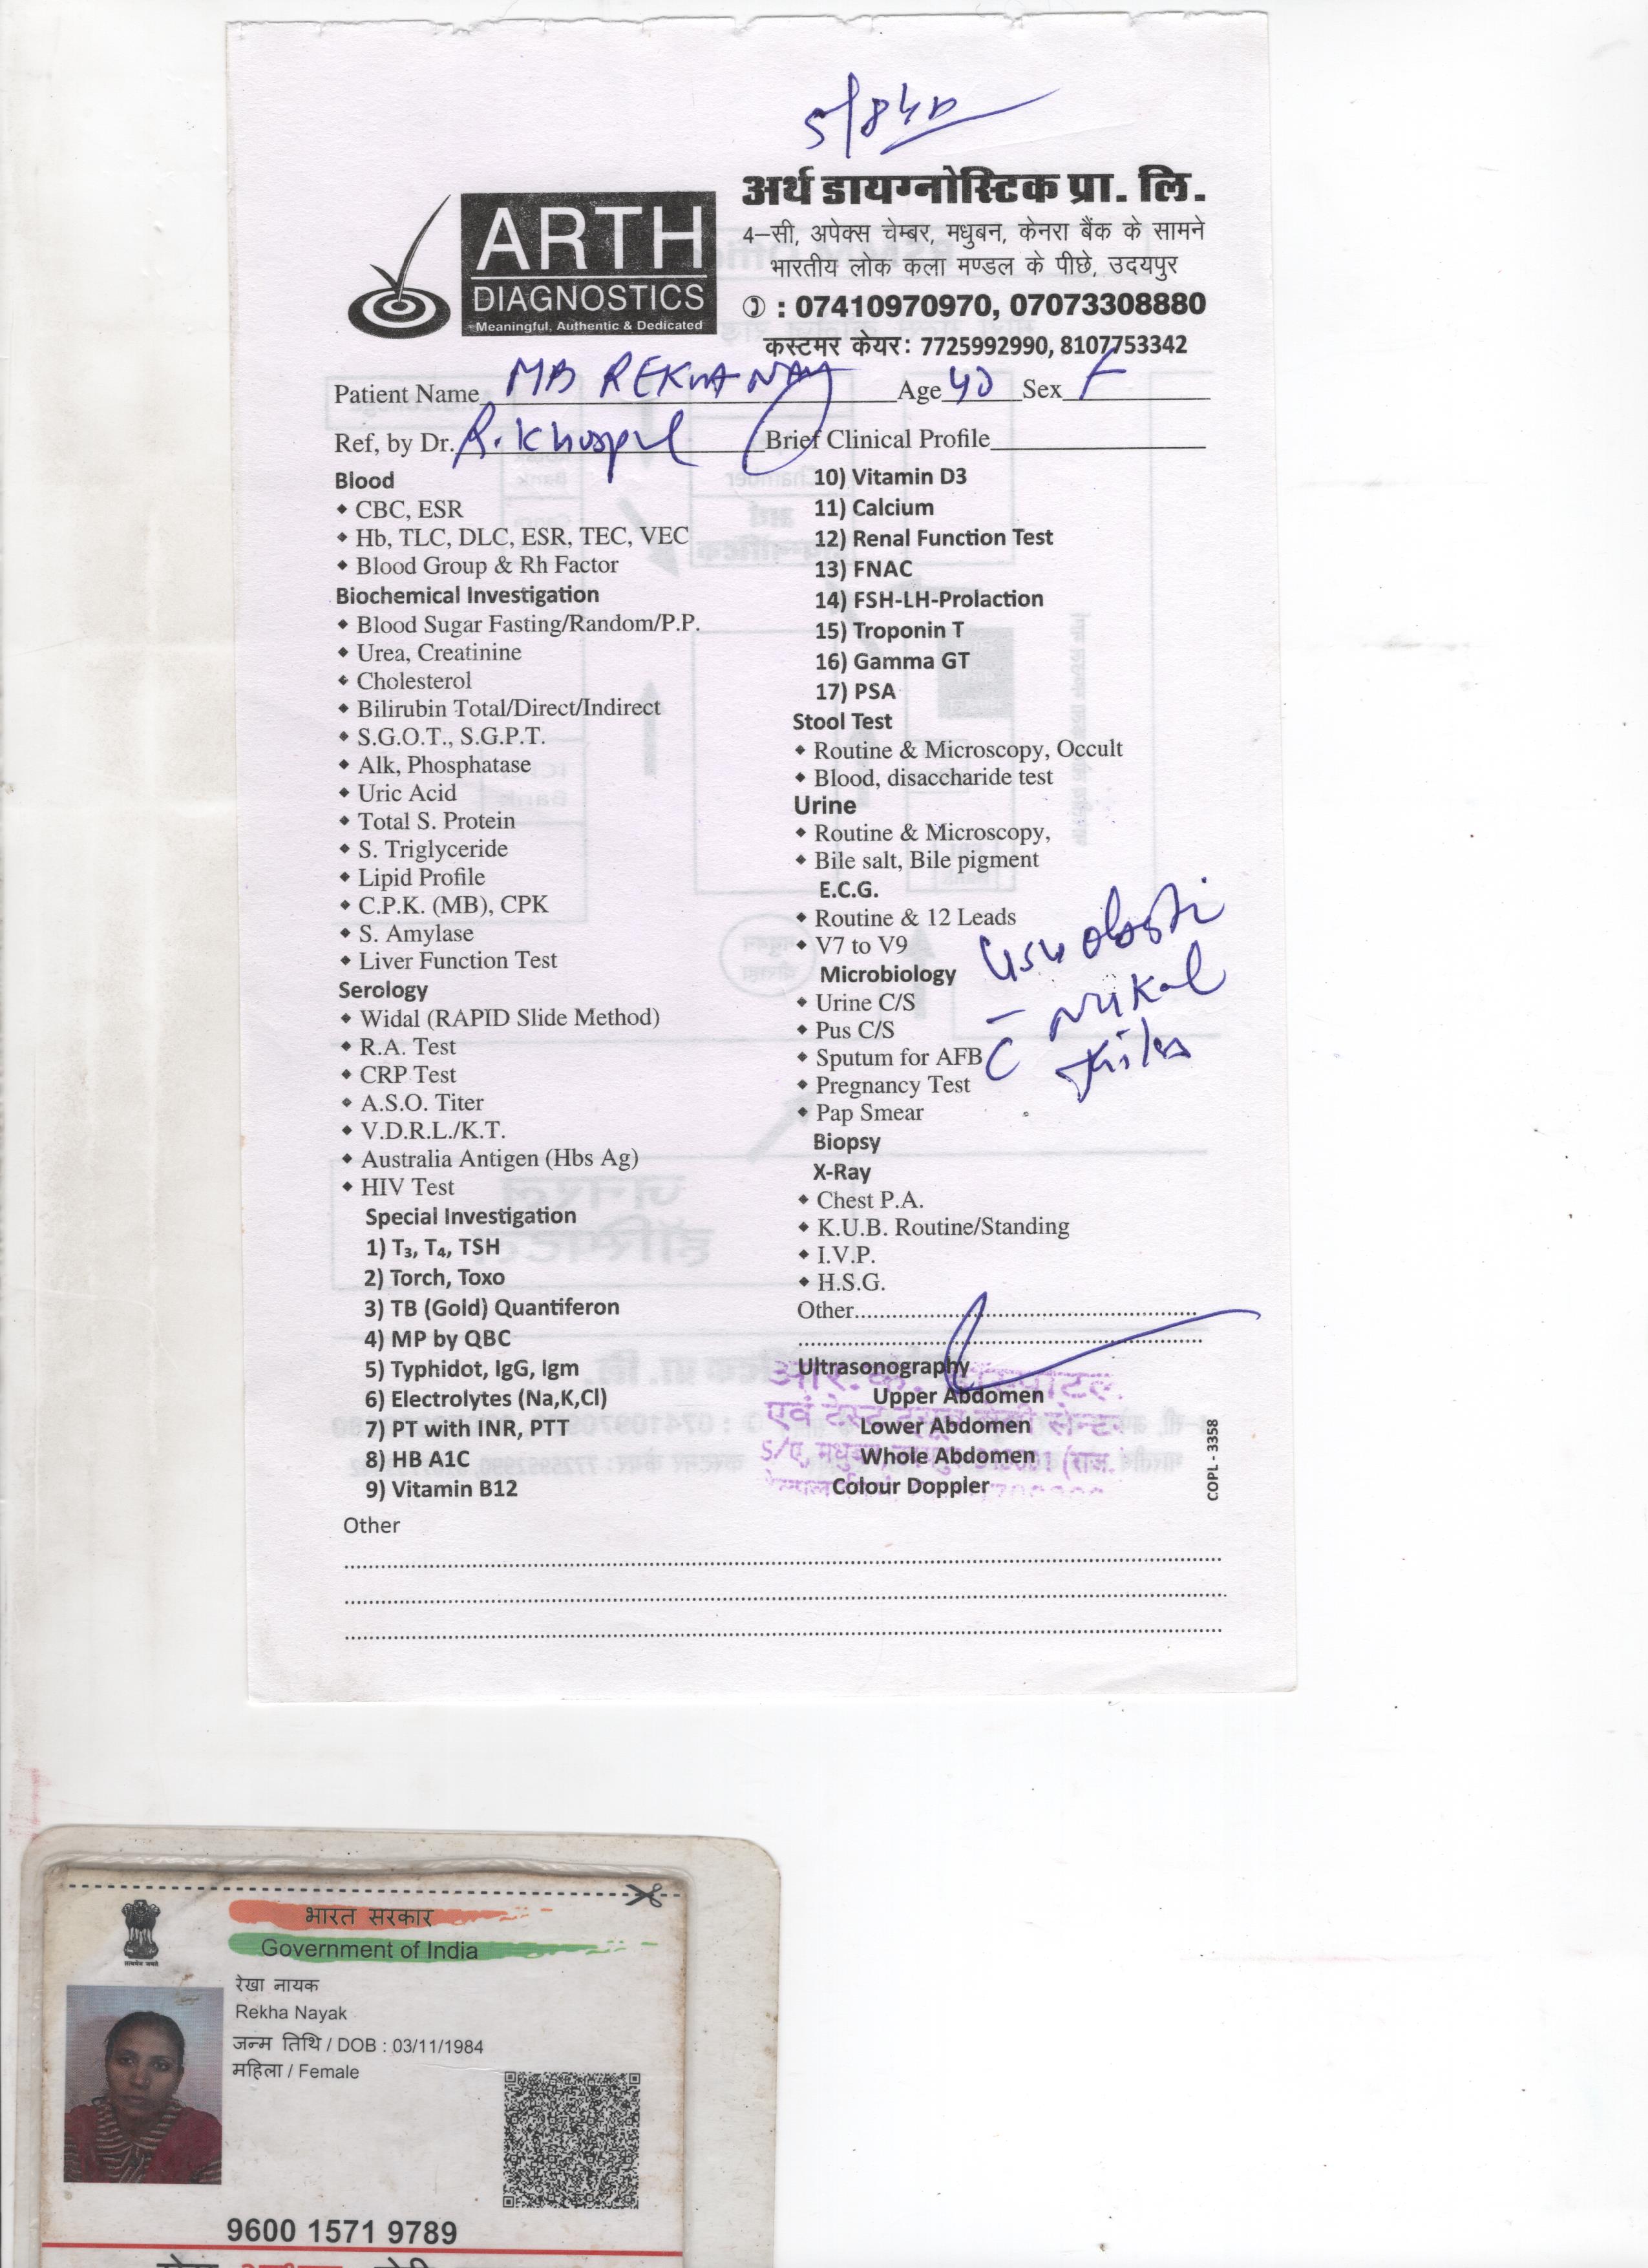 अर्थ डायग्नोस्टिक प्रा. लि.
ARTH
DIAGNOSTICS
Meaningful, Authentic & Dedicated
4–सी, अपेक्स चेम्बर, मधुबन, केनरा बैंक के सामने
भारतीय लोक कला मण्डल के पीछे, उदयपुर
: 07410970970, 07073308880
कस्टमर केयर: 7725992990, 8107753342
Patient Name REKHA Age 40 Sex F
Ref, by Dr. Brief Clinical Profile
Blood
CBC, ESR
Hb, TLC, DLC, ESR, TEC, VEC
Blood Group & Rh Factor
Biochemical Investigation
Blood Sugar Fasting/Random/P.P.
Urea, Creatinine
Cholesterol
Bilirubin Total/Direct/Indirect
S.G.O.T., S.G.P.T.
Alk, Phosphatase
Uric Acid
Total S. Protein
S. Triglyceride
Lipid Profile
C.P.K. (MB), CPK
S. Amylase
Liver Function Test
Serology
Widal (RAPID Slide Method)
R.A. Test
CRP Test
A.S.O. Titer
V.D.R.L./K.T.
Australia Antigen (Hbs Ag)
HIV Test
Special Investigation
1) T₃, T₄, TSH
2) Torch, Toxo
3) TB (Gold) Quantiferon
4) MP by QBC
5) Typhidot, IgG, Igm
6) Electrolytes (Na,K,Cl)
7) PT with INR, PTT
8) HB A1C
9) Vitamin B12
10) Vitamin D3
11) Calcium
12) Renal Function Test
13) FNAC
14) FSH-LH-Prolaction
15) Troponin T
16) Gamma GT
17) PSA
Stool Test
Routine & Microscopy, Occult
Blood, disaccharide test
Urine
Routine & Microscopy,
Bile salt, Bile pigment
E.C.G.
Routine & 12 Leads
V7 to V9
Microbiology
Urine C/S
Pus C/S
Sputum for AFB
Pregnancy Test
Pap Smear
Biopsy
X-Ray
Chest P.A.
K.U.B. Routine/Standing
I.V.P.
H.S.G.
Other
Ultrasonography
Upper Abdomen
Lower Abdomen
Whole Abdomen
Colour Doppler
COPL - 3358
Other
भारत सरकार
Government of India
रेखा नायक
Rekha Nayak
जन्म तिथि / DOB : 03/11/1984
महिला / Female
9600 1571 9789